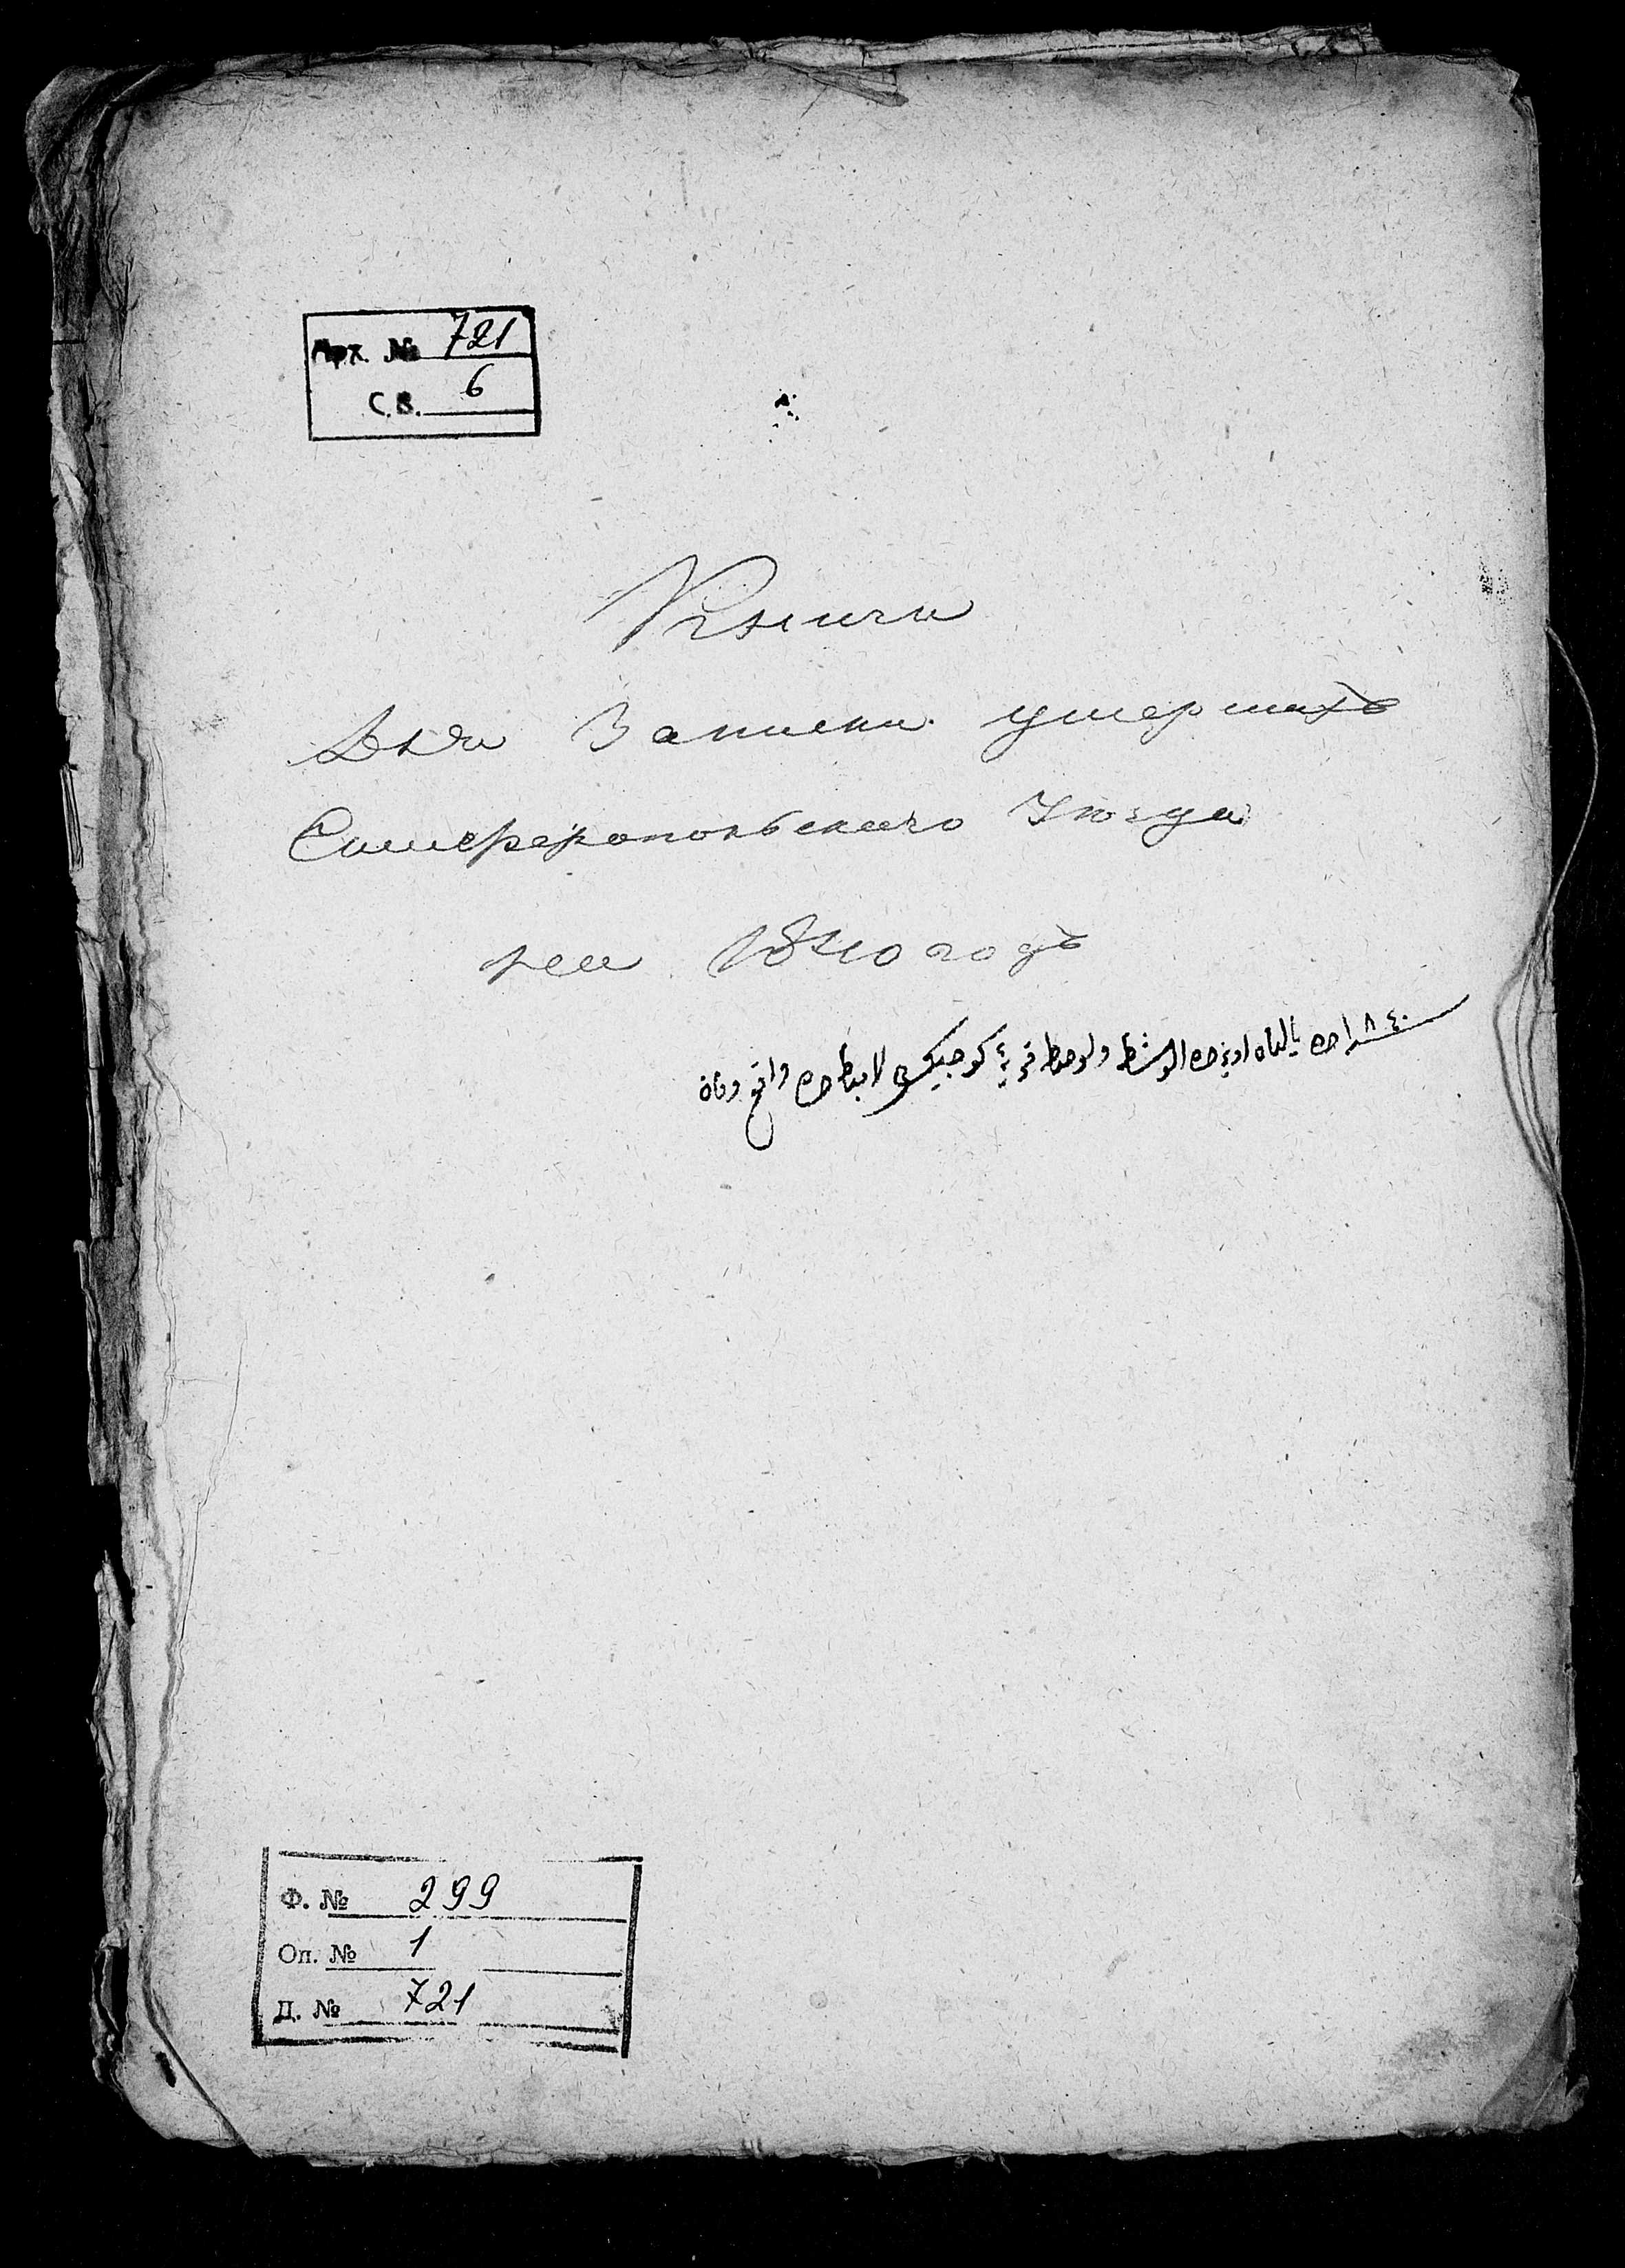 Арх. № 721
С.В. 6
Книга
Для Записки умершихъ
Симферопольскаго Уѣзда
на 1840 годъ
واقع وفات
Ф. № 299
Оп. № 1
Д. № 721